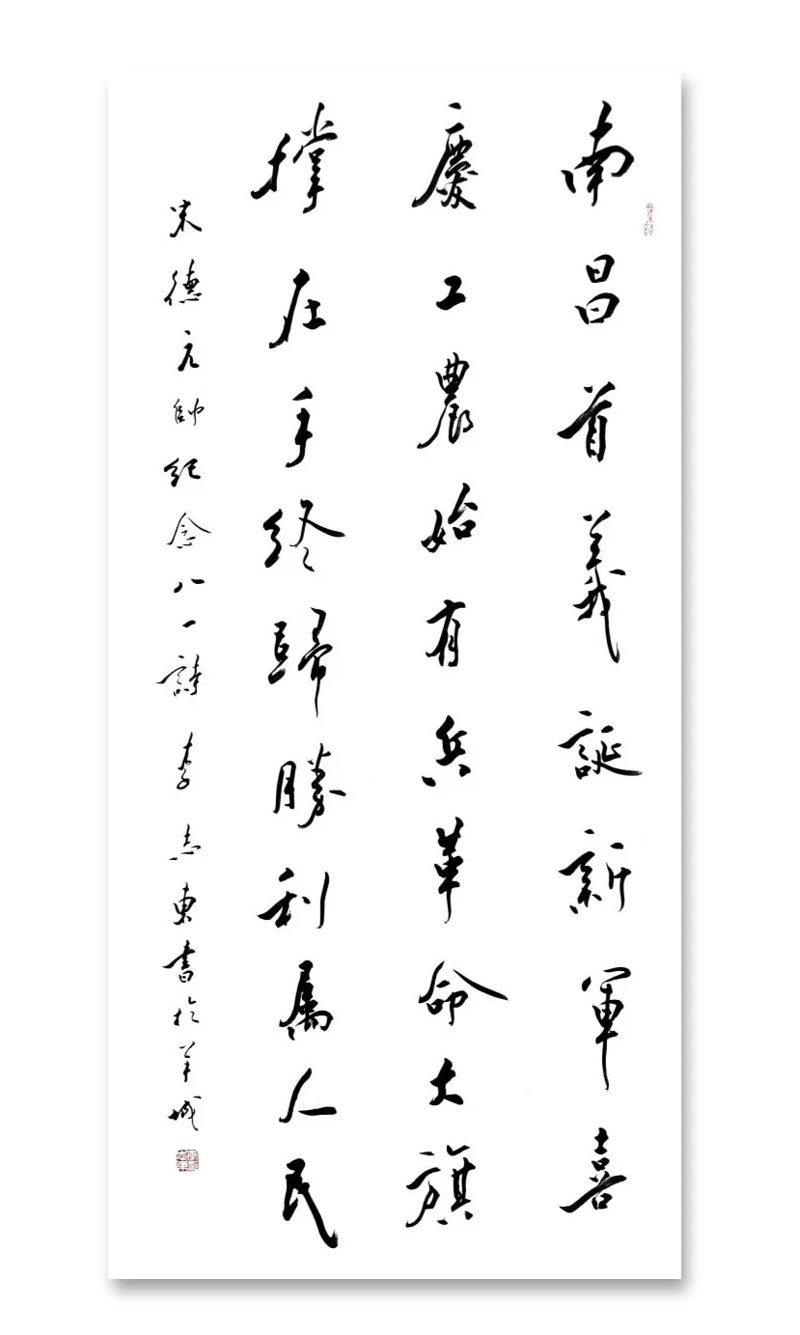 南昌首義誕新軍喜
慶工農始有兵革命大旗
撑在手終歸勝利屬人民
朱德元帥紀念八一詩 李志東書於羊城